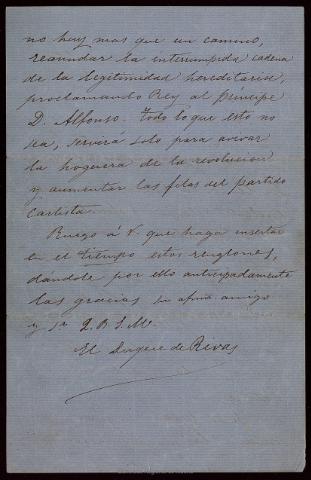 no hay mas que un camino,
reanudar la interrumpida cadena
de la legitimidad hereditaria,
proclamando Rey al príncipe
D. Alfonso. Todo lo que esto no
sea, servirá solo para avivar
la hoguera de la revolucion
y aumentar las filas del partido
carlista.
Ruego á V. que haga insertar
en el tiempo estos renglones,
dándole por ello anticipadamente
las gracias su afmo. amigo
y Q. B. S. M.
El Duque de Rivas